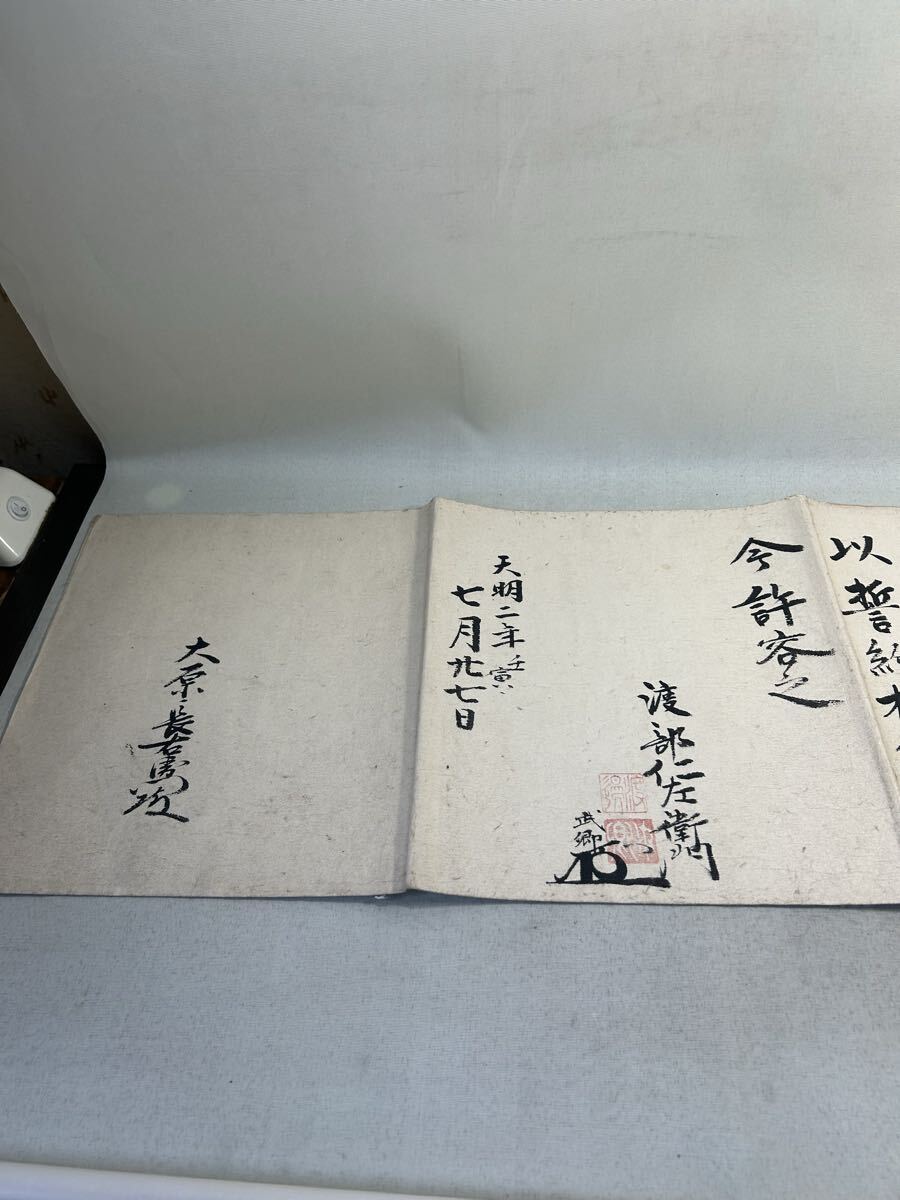 以誓紙
今許容之
渡部仁左衛門
武郷
天明二年壬寅
七月廿七日
大原長右衛門殿